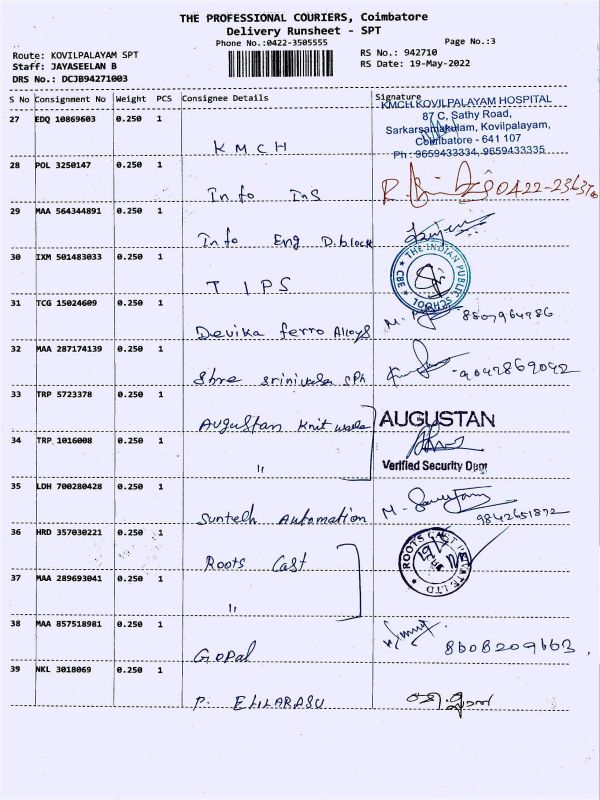 THE PROFESSIONAL COURIERS, Coimbatore
Delivery Runsheet - SPT
Phone No.:0422-3505555
Page No.:3
Route: KOVILPALAYAM SPT
RS No.: 942710
Staff: JAYASEELAN B
RS Date: 19-May-2022
DRS No.: DCJB94271003
S No Consignment No Weight PCS Consignee Details Signature
27 EDQ 10869603 0.250 1
KMCH KOVILPALAYAM HOSPITAL
87 C, Sathy Road,
Sarkarsamakulam, Kovilpalayam,
Coimbatore - 641 107
Ph : 9659433334, 9659433335
KMCH
28 POL 3250147 0.250 1
Info Ins
29 MAA 564344891 0.250 1
Info Eng D.block
30 IXM 501483033 0.250 1
TIPS
THE INDIAN PUBLIC SCHOOL
CBE
31 TCG 15024609 0.250 1
Devika ferro Alloys
32 MAA 287174139 0.250 1
Shree
33 TRP 5723378 0.250 1
Augustan Knit
AUGUSTAN
34 TRP 1016008 0.250 1
"
Verified Security Dept
35 LDH 700280428 0.250 1
Automation
9842651872
36 HRD 357030221 0.250 1
Roots Cast
ROOTS CAST PRIVATE LTD
37 MAA 289693041 0.250 1
"
38 MAA 857518981 0.250 1
Gopal
8608209663
39 NKL 3018069 0.250 1
P. ELILARASU